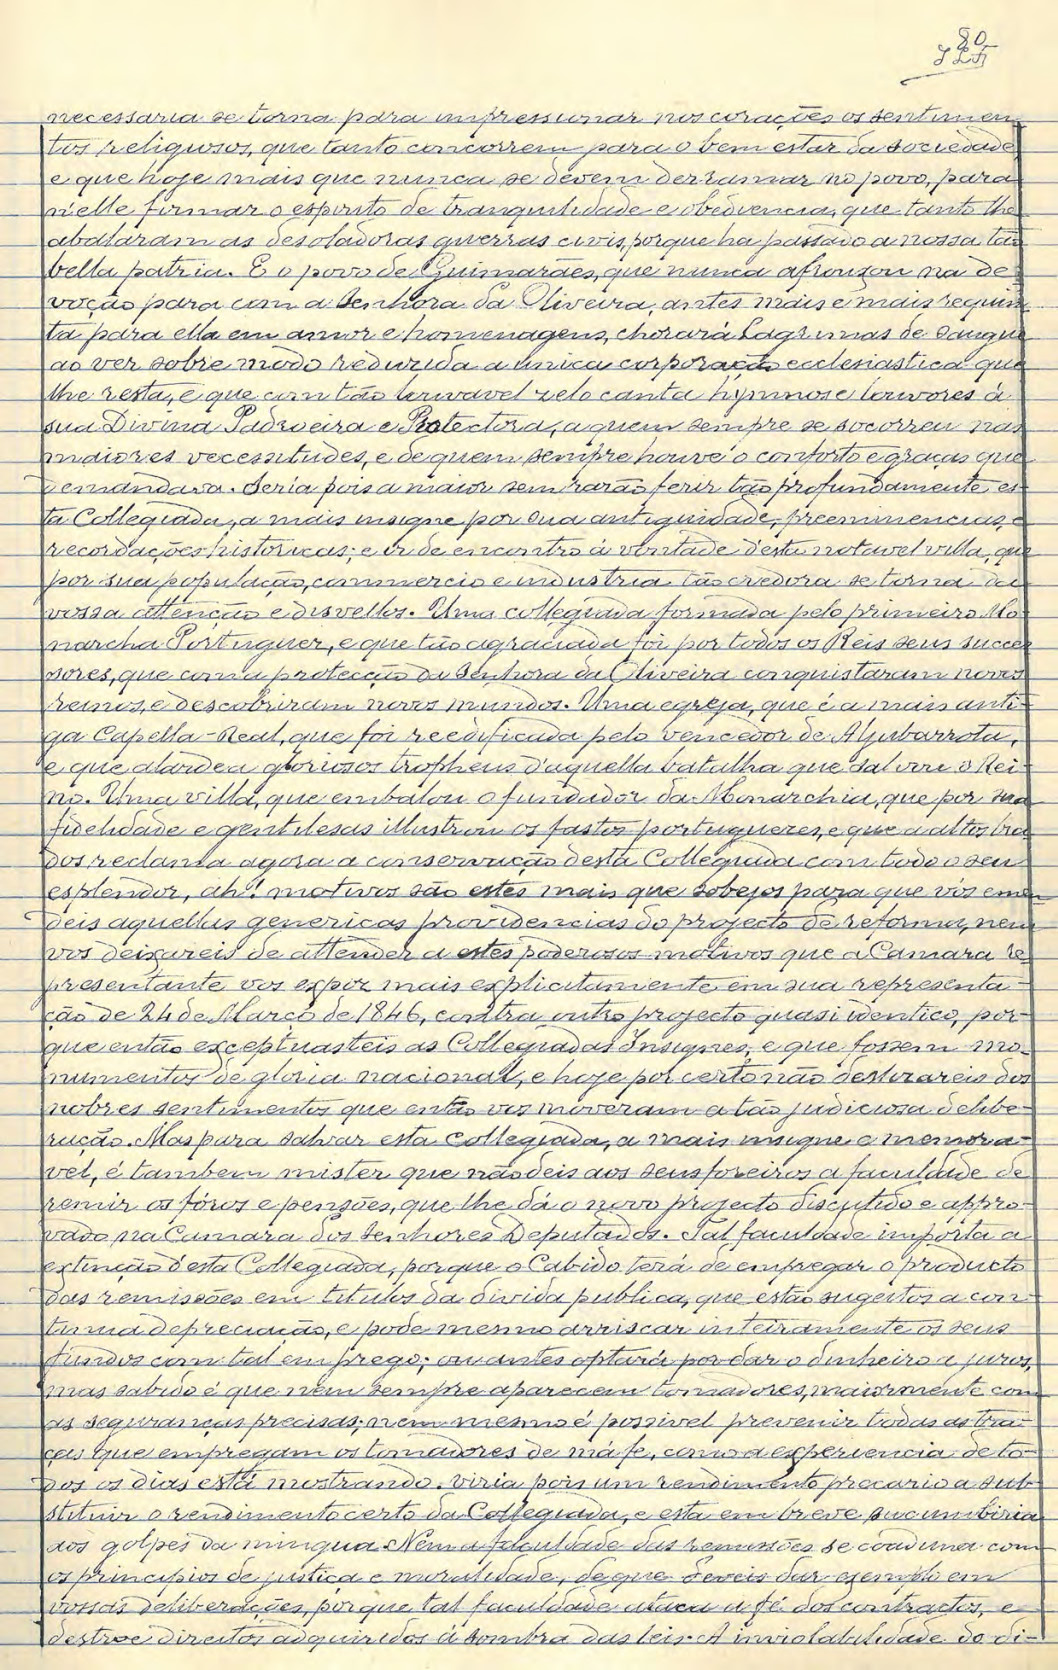 80
necessaria se torna para impressionar nos corações os sentimen-
tos religiosos, que tanto concorrem para o bem estar da sociedade,
e que hoje mais que nunca se devem derramar no povo, para
n'elle firmar o espirito de tranquilidade e obediencia, que tanto lhe
abalaram as desoladoras guerras civis, porque ha passado a nossa tão
bella patria. E o povo de Guimarães, que nunca afrouxou na de-
voção para com a Senhora da Oliveira, antes mais e mais requin-
ta para ella em amor e homenagens, chorará lagrimas de sangue
ao ver sobre modo reduzida a unica corporação ecclesiastica que
lhe resta, e que com tão louvavel zelo canta hymnos e louvores á
sua Divina Padroeira e Protectora, a quem sempre se socorreu nas
maiores vecessitudes, e de quem sempre houve o conforto e graças que
demandava. Seria pois a maior sem rarão ferir tão profundamente es-
ta Collegiada, a mais insigne por sua antiguidade, preeminencias, e
recordações historicas; e ir de encontro á vontade d'esta notavel villa, que
por sua população, commercio e industria tão credora se torna da
vossa attenção e disvellos. Uma collegiada formada pelo primeiro Mo-
narcha Portuguez, e que tão agraciada foi por todos os Reis seus succes-
sores, que com a protecção da Senhora da Oliveira conquistaram novos
reinos, e descobriram novos mundos. Uma egreja, que é a mais anti-
ga Capella-Real, que foi reedificada pelo vencedor de Aljubarrota,
e que alardea gloriosos tropheus d'aquella batalha que salvou o Rei-
no. Uma villa, que embalou o fundador da Monarchia, que por sua
fidelidade e gentilesas illustrou os fastos portuguezes, e que a altos bra-
dos reclama agora a conservação desta Collegiada com todo o seu
esplendor, ah! motivos são estes mais que sobejos para que vós emen-
deis aquellas genericas providencias do projecto de reforma, nem
vos deixareis de attender a estes poderosos motivos que a Camara re-
presentante vos expoz mais explicitamente em sua representa-
ção de 24 de Março de 1846, contra outro projecto quasi identico, por-
que então exceptuasteis as Collegiadas Insignes, e que fossem mo-
numentos de gloria nacional, e hoje por certo não desluzareis dos
nobres sentimentos que então vos moveram a tão judiciosa delibe-
ração. Mas para salvar esta Collegiada, a mais insigne e memora-
vel, é tambem mister que não deis aos seus foreiros a faculdade de
remir os fóros e pensões, que lhe dá o novo projecto discutido e appro-
vado na Camara dos Senhores Deputados. Tal faculdade importa a
extinção d'esta Collegiada, porque o Cabido terá de empregar o producto
das remissões em titulos da divida publica, que estão sugeitos a con-
tinua depreciação, e pode mesmo arriscar inteiramente os seus
fundos com tal emprego; ou antes optará por dar o dinheiro a juros,
mas sabido é que nem sempre aparecem tomadores, maiormente com
as seguranças precisas; nem mesmo é possivel prevenir todas as tra-
ças que empregam os tomadores de má fe, como a experiencia de to-
dos os dias está mostrando. viria pois um rendimento precario a sub-
stituir o rendimento certo da Collegiada, e esta em breve sucumbiria
aos golpes da mingua. Nem a faculdade das remissões se coaduna com
os principios de justiça e moralidade, de que deveis dar exemplo em
vossas deliberações, porque tal faculdade ataca a fé dos contractos, e
destroe direitos adquiridos á sombra das leis. A inviolabilidade do di-